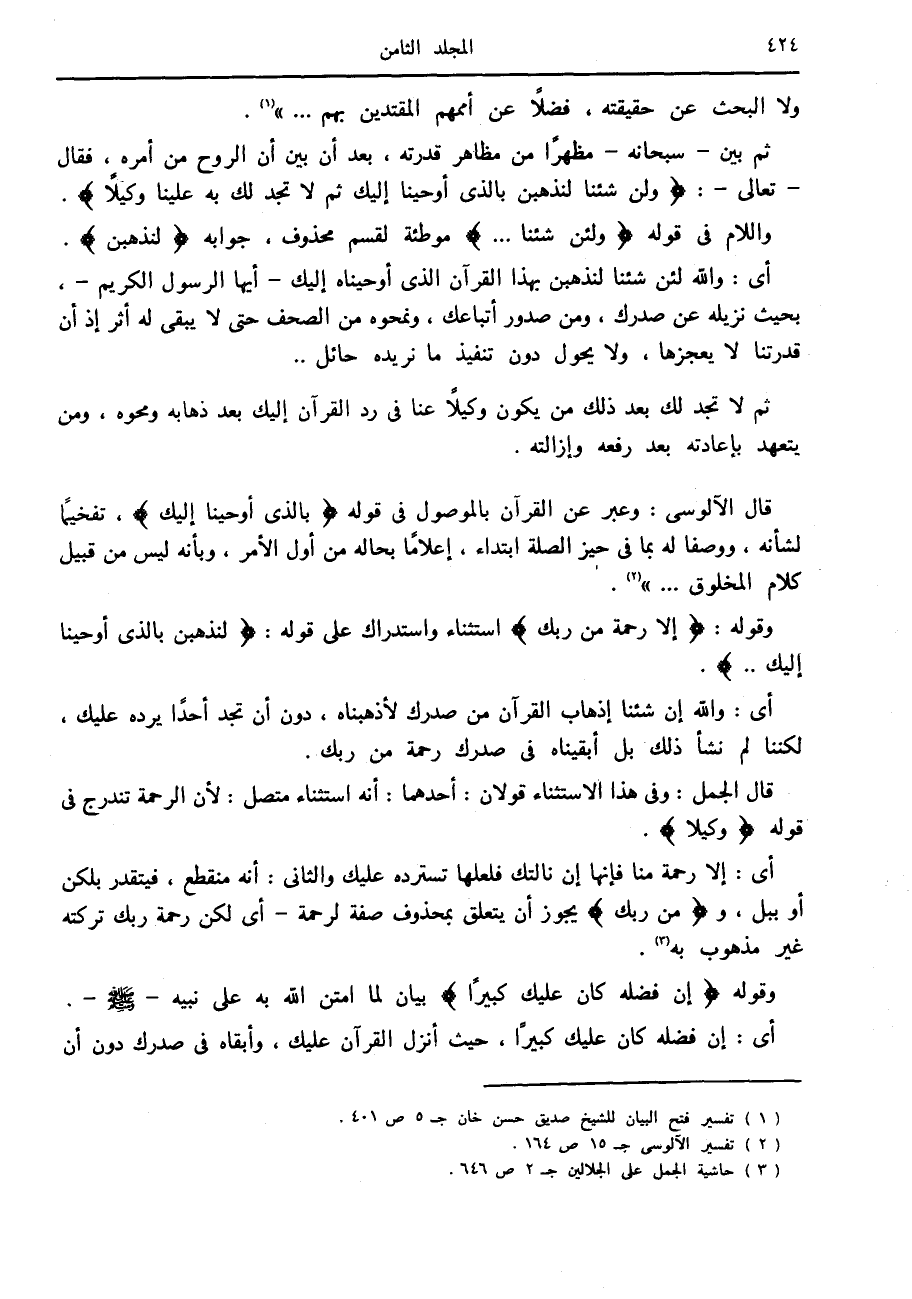 ٤٢٤ المجلد الثامن
ولا البحث عن حقيقته ، فضلًا عن أممهم المقتدين بهم ... »(١) .
ثم بين – سبحانه – مظهرًا من مظاهر قدرته ، بعد أن بين أن الروح من أمره ، فقال
– تعالى – : ﴿ ولئن شئنا لنذهبن بالذى أوحينا إليك ثم لا تجد لك به علينا وكيلًا ﴾ .
واللام فى قوله ﴿ ولئن شئنا ... ﴾ موطئة لقسم محذوف ، جوابه ﴿ لنذهبن ﴾ .
أى : والله لئن شئنا لنذهبن بهذا القرآن الذى أوحيناه إليك – أيها الرسول الكريم – ،
بحيث نزيله عن صدرك ، ومن صدور أتباعك ، ونمحوه من الصحف حتى لا يبقى له أثر إذ أن
قدرتنا لا يعجزها ، ولا يحول دون تنفيذ ما نريده حائل ..
ثم لا تجد لك بعد ذلك من يكون وكيلًا عنا فى رد القرآن إليك بعد ذهابه ومحوه ، ومن
يتعهد بإعادته بعد رفعه وإزالته .
قال الآلوسى : وعبر عن القرآن بالموصول فى قوله ﴿ بالذى أوحينا إليك ﴾ ، تفخيمًا
لشأنه ، ووصفا له بما فى حيز الصلة ابتداء ، إعلامًا بحاله من أول الأمر ، وبأنه ليس من قبيل
كلام المخلوق ... »(٢) .
وقوله : ﴿ إلا رحمة من ربك ﴾ استثناء واستدراك على قوله : ﴿ لنذهبن بالذى أوحينا
إليك .. ﴾ .
أى : والله إن شئنا إذهاب القرآن من صدرك لأذهبناه ، دون أن تجد أحدًا يرده عليك ،
لكننا لم نشأ ذلك بل أبقيناه فى صدرك رحمة من ربك .
قال الجمل : وفى هذا الاستثناء قولان : أحدهما : أنه استثناء متصل : لأن الرحمة تندرج فى
قوله ﴿ وكيلا ﴾ .
أى : إلا رحمة منا فإنها إن نالتك فلعلها تسترده عليك والثانى : أنه منقطع ، فيتقدر بلكن
أو ببل ، و ﴿ من ربك ﴾ يجوز أن يتعلق بمحذوف صفة لرحمة – أى لكن رحمة ربك تركته
غير مذهوب به(٣) .
وقوله ﴿ إن فضله كان عليك كبيرًا ﴾ بيان لما امتن الله به على نبيه – ﷺ – .
أى : إن فضله كان عليك كبيرًا ، حيث أنزل القرآن عليك ، وأبقاه فى صدرك دون أن
( ١ ) تفسير فتح البيان للشيخ صديق حسن خان جـ ٥ ص ٤٠١ .
( ٢ ) تفسير الآلوسى جـ ١٥ ص ١٦٤ .
( ٣ ) حاشية الجمل على الجلالين جـ ٢ ص ٦٤٦ .